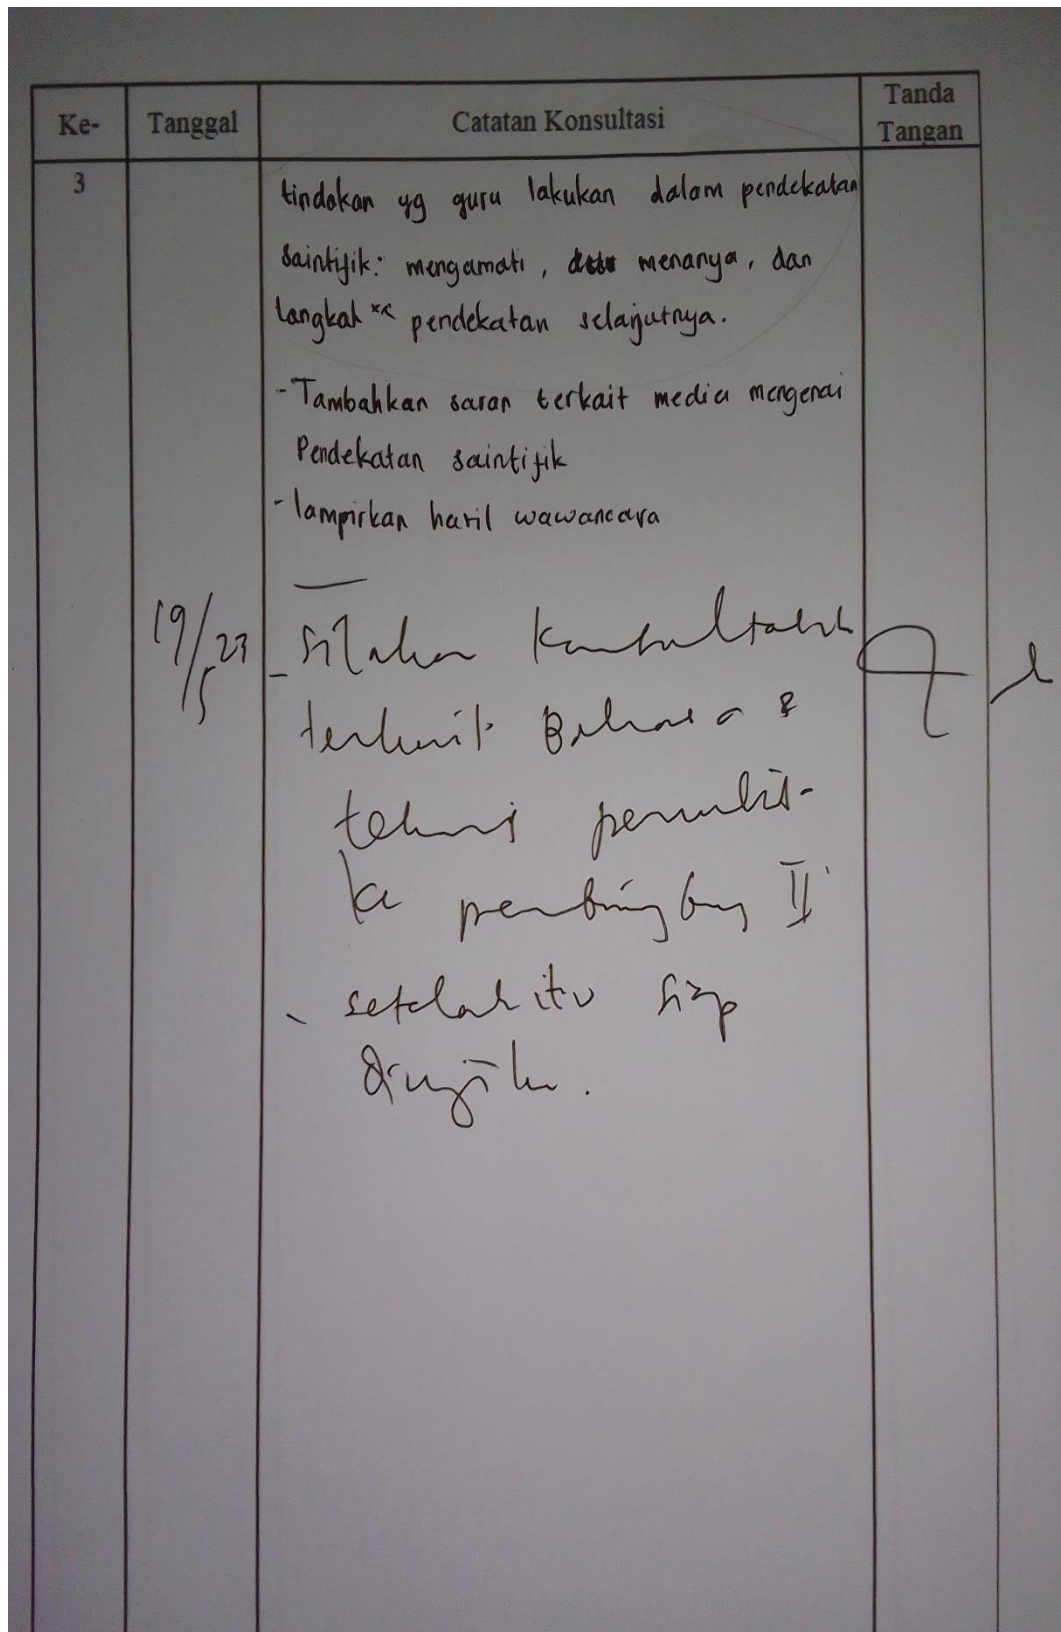 Ke- Tanggal Catatan Konsultasi Tanda Tangan
3
tindakan yg guru lakukan dalam pendekatan
saintifik: mengamati, menanya, dan
langkah pendekatan selanjutnya.
- Tambahkan saran terkait media mengenai
Pendekatan saintifik
- lampirkan hasil wawancara
19/5 23
- silakan konsultasik
terkait Bahasa &
teknis penulis-
ke pembimbing II
- setelah itu siap
diujikan.